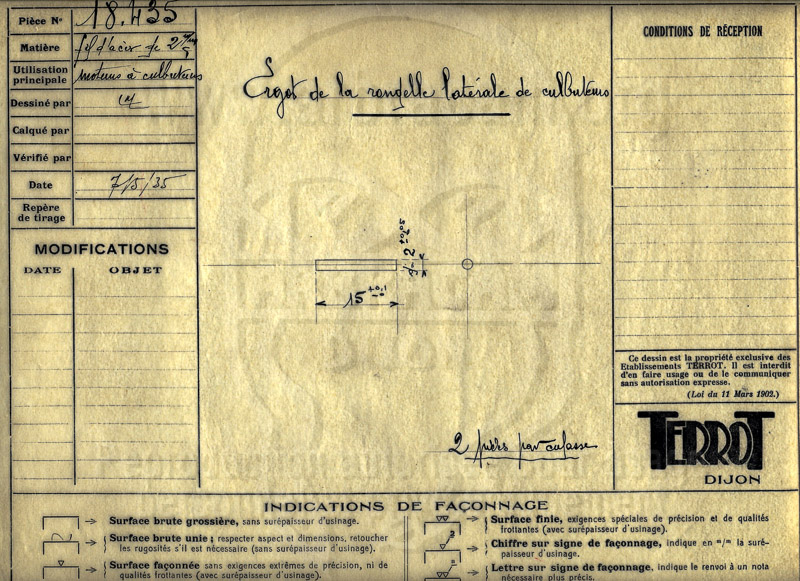 Pièce N° 18.435
Matière fil d'acier de 2 m/m
Utilisation
principale moteurs à culbuteurs
Dessiné par
Calqué par
Vérifié par
Date 7/5/35
Repère
de tirage
MODIFICATIONS
DATE OBJET
Ergot de la rondelle latérale de culbuteurs
15 +0,1
-0
2 pièces par culasse
CONDITIONS DE RÉCEPTION
Ce dessin est la propriété exclusive des
Etablissements TERROT. Il est interdit
d'en faire usage ou de le communiquer
sans autorisation expresse.
(Loi du 11 Mars 1902.)
TERROT
DIJON
INDICATIONS DE FAÇONNAGE
Surface brute grossière, sans surépaisseur d'usinage.
Surface brute unie ; respecter aspect et dimensions, retoucher
les rugosités s'il est nécessaire (sans surépaisseur d'usinage).
Surface façonnée sans exigences extrêmes de précision, ni de
qualités frottantes (avec surépaisseur d'usinage).
Surface finie, exigences spéciales de précision et de qualités
frottantes (avec surépaisseur d'usinage).
Chiffre sur signe de façonnage, indique en m/m la suré-
paisseur d'usinage.
Lettre sur signe de façonnage, indique le renvoi à un nota
nécessaire plus précis.